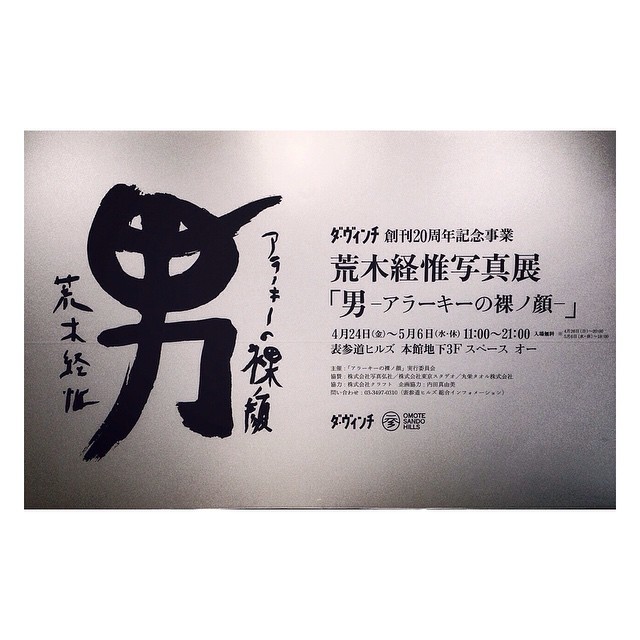 男
アラーキーの裸ノ顔
荒木経惟
ダ・ヴィンチ 創刊20周年記念事業
荒木経惟写真展
「男 –アラーキーの裸ノ顔–」
4月24日(金)〜5月6日(水・休) 11:00〜21:00 入場無料
表参道ヒルズ 本館地下3F スペース オー
主催:「アラーキーの裸ノ顔」実行委員会
協賛:株式会社写真弘社/株式会社東京スタデオ/丸栄タオル株式会社
協力:株式会社クラフト 企画協力:内田真由美
問い合わせ:03-3497-0310(表参道ヒルズ 総合インフォメーション)
ダ・ヴィンチ
OMOTE
SANDO
HILLS